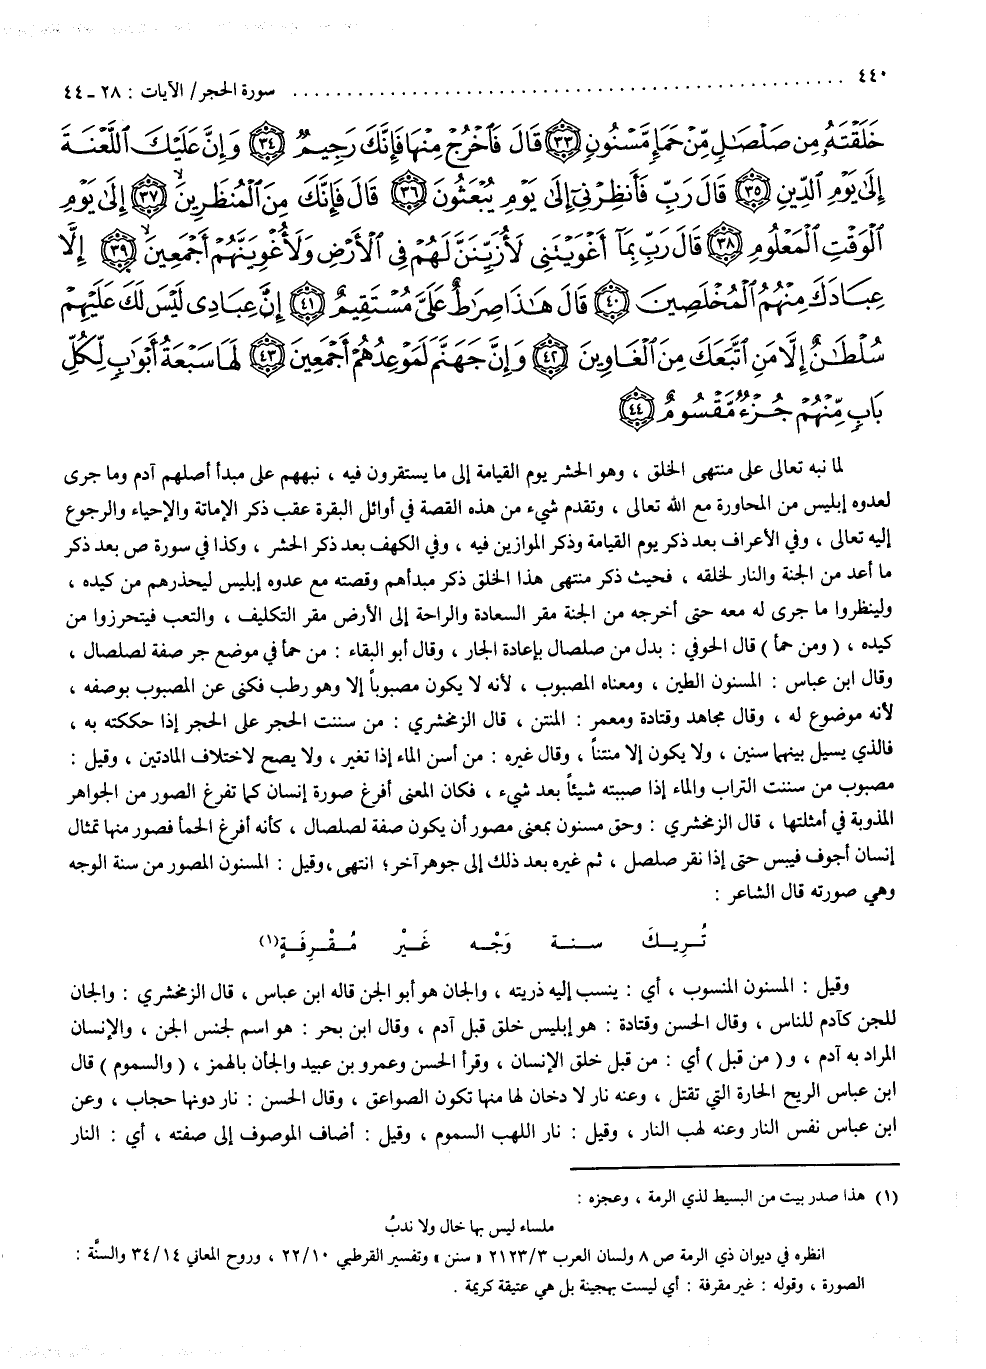 ٤٤٠ ........ سورة الحجر/ الآيات : ٢٨ ـ ٤٤
خَلَقْتَهُۥ مِن صَلْصَٰلٍ مِّنْ حَمَإٍ مَّسْنُونٍ ﴿٣٣﴾ قَالَ فَٱخْرُجْ مِنْهَا فَإِنَّكَ رَجِيمٌ ﴿٣٤﴾ وَإِنَّ عَلَيْكَ ٱللَّعْنَةَ
إِلَىٰ يَوْمِ ٱلدِّينِ ﴿٣٥﴾ قَالَ رَبِّ فَأَنظِرْنِىٓ إِلَىٰ يَوْمِ يُبْعَثُونَ ﴿٣٦﴾ قَالَ فَإِنَّكَ مِنَ ٱلْمُنظَرِينَ ﴿٣٧﴾ إِلَىٰ يَوْمِ
ٱلْوَقْتِ ٱلْمَعْلُومِ ﴿٣٨﴾ قَالَ رَبِّ بِمَآ أَغْوَيْتَنِى لَأُزَيِّنَنَّ لَهُمْ فِى ٱلْأَرْضِ وَلَأُغْوِيَنَّهُمْ أَجْمَعِينَ ﴿٣٩﴾ إِلَّا
عِبَادَكَ مِنْهُمُ ٱلْمُخْلَصِينَ ﴿٤٠﴾ قَالَ هَٰذَا صِرَٰطٌ عَلَىَّ مُسْتَقِيمٌ ﴿٤١﴾ إِنَّ عِبَادِى لَيْسَ لَكَ عَلَيْهِمْ
سُلْطَٰنٌ إِلَّا مَنِ ٱتَّبَعَكَ مِنَ ٱلْغَاوِينَ ﴿٤٢﴾ وَإِنَّ جَهَنَّمَ لَمَوْعِدُهُمْ أَجْمَعِينَ ﴿٤٣﴾ لَهَا سَبْعَةُ أَبْوَٰبٍ لِّكُلِّ
بَابٍ مِّنْهُمْ جُزْءٌ مَّقْسُومٌ ﴿٤٤﴾
لما نبه تعالى على منتهى الخلق ، وهو الحشر يوم القيامة إلى ما يستقرون فيه ، نبههم على مبدأ أصلهم آدم وما جرى
لعدوه إبليس من المحاورة مع الله تعالى ، وتقدم شيء من هذه القصة في أوائل البقرة عقب ذكر الإماتة والإحياء والرجوع
إليه تعالى ، وفي الأعراف بعد ذكر يوم القيامة وذكر الموازين فيه ، وفي الكهف بعد ذكر الحشر ، وكذا في سورة ص بعد ذكر
ما أعد من الجنة والنار لخلقه ، فحيث ذكر منتهى هذا الخلق ذكر مبدأهم وقصته مع عدوه إبليس ليحذرهم من كيده ،
ولينظروا ما جرى له معه حتى أخرجه من الجنة مقر السعادة والراحة إلى الأرض مقر التكليف ، والتعب فيتحرزوا من
كيده ، ( ومن حمأ ) قال الحوفي : بدل من صلصال بإعادة الجار ، وقال أبو البقاء : من حمأ في موضع جر صفة لصلصال ،
وقال ابن عباس : المسنون الطين ، ومعناه المصبوب ، لأنه لا يكون مصبوباً إلا وهو رطب فكنى عن المصبوب بوصفه ،
لأنه موضوع له ، وقال مجاهد وقتادة ومعمر : المنتن ، قال الزمخشري : من سننت الحجر على الحجر إذا حككته به ،
فالذي يسيل بينهما سنين ، ولا يكون إلا منتناً ، وقال غيره : من أسن الماء إذا تغير ، ولا يصح لاختلاف المادتين ، وقيل :
مصبوب من سننت التراب والماء إذا صببته شيئاً بعد شيء ، فكان المعنى أفرغ صورة إنسان كما تفرغ الصور من الجواهر
المذوبة في أمثلتها ، قال الزمخشري : وحق مسنون بمعنى مصور أن يكون صفة لصلصال ، كأنه أفرغ الحمأ فصور منها تمثال
إنسان أجوف فيبس حتى إذا نقر صلصل ، ثم غيره بعد ذلك إلى جوهر آخر؛ انتهى ، وقيل : المسنون المصور من سنة الوجه
وهي صورته قال الشاعر :
تُرِيكَ سنة وَجْه غَيْر مُقْرِفَةٍ(١)
وقيل : المسنون المنسوب ، أي : ينسب إليه ذريته ، والجان هو أبو الجن قاله ابن عباس ، قال الزمخشري : والجان
للجن كآدم للناس ، وقال الحسن وقتادة : هو إبليس خلق قبل آدم ، وقال ابن بحر : هو اسم لجنس الجن ، والإنسان
المراد به آدم ، و ( من قبل ) أي : من قبل خلق الإنسان ، وقرأ الحسن وعمرو بن عبيد والجأن بالهمز ، ( والسموم ) قال
ابن عباس الريح الحارة التي تقتل ، وعنه نار لا دخان لها منها تكون الصواعق ، وقال الحسن : نار دونها حجاب ، وعن
ابن عباس نفس النار وعنه لهب النار ، وقيل : نار اللهب السموم ، وقيل : أضاف الموصوف إلى صفته ، أي : النار
(١) هذا صدر بيت من البسيط لذي الرمة ، وعجزه :
ملساء ليس بها خال ولا ندبُ
انظره في ديوان ذي الرمة ص ٨ ولسان العرب ٢١٢٣/٣ « سنن » وتفسير القرطبي ٢٢/١٠ ، وروح المعاني ٣٤/١٤ والسنَّة :
الصورة ، وقوله : غير مقرفة : أي ليست بهجينة بل هي عتيقة كريمة .